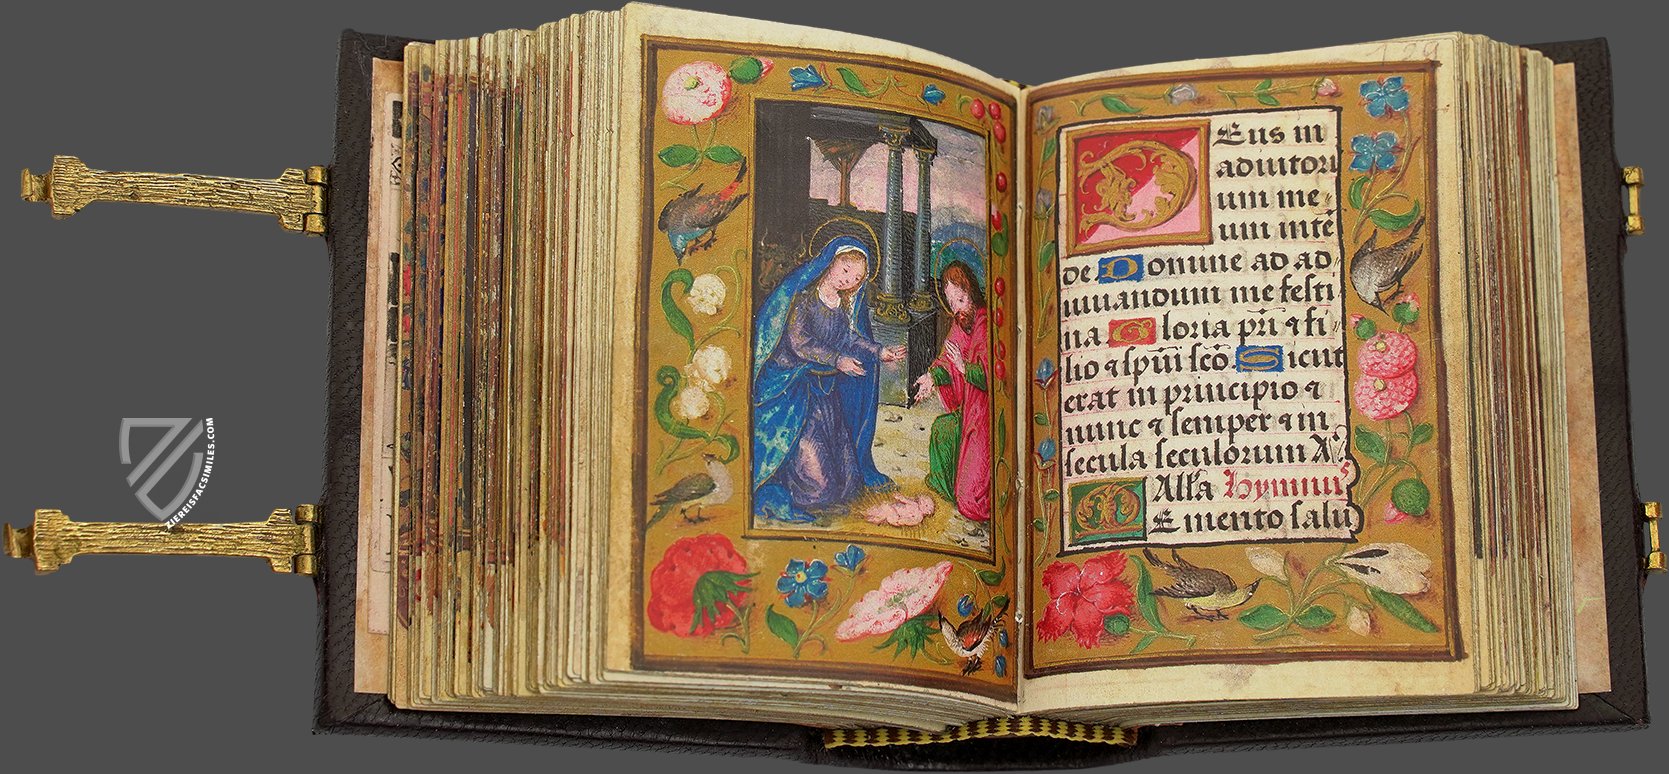 129
Deus in
adiutori
um me
um inte
de Domine ad ad
iuuandum me festi
na Gloria pri ⁊ fi
lio ⁊ spui sco Sicut
erat in principio ⁊
nunc ⁊ semper ⁊ in
secula seculorum A
Alla Hymnus
Memento salu
ZIEREISFACSIMILES.COM